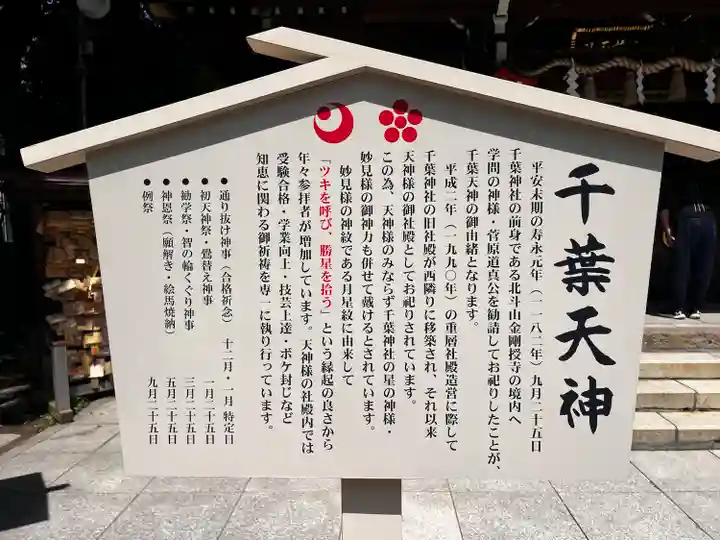 千葉天神
平安末期の寿永元年（一一八二年）九月二十五日
千葉神社の前身である北斗山金剛授寺の境内へ
学問の神様・菅原道真公を勧請してお祀りしたことが、
千葉天神の御由緒となります。
平成二年（一九九〇年）の重層社殿造営に際して
千葉神社の旧社殿が西隣りに移築され、それ以来
天神様の御社殿としてお祀りされています。
この為、天神様のみならず千葉神社の星の神様・
妙見様の御神力も併せて戴けるとされています。
妙見様の神紋である月星紋に由来して
「ツキを呼び、勝星を拾う」という縁起の良さから
年々参拝者が増加しています。天神様の社殿内では
受験合格・学業向上・技芸上達・ボケ封じなど
知恵に関わる御祈祷を専一に執り行っています。
●通り抜け神事（合格祈念） 十二月・一月 特定日
●初天神祭・鷽替え神事 一月二十五日
●勧学祭・智の輪くぐり神事 三月二十五日
●神恩祭（願解き・絵馬焼納） 五月二十五日
●例祭 九月二十五日